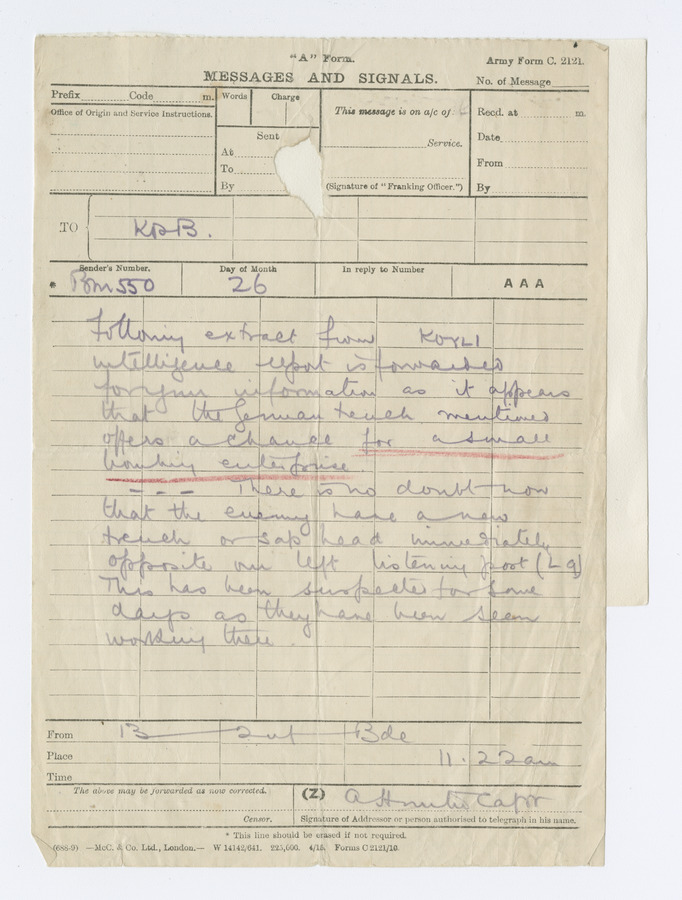 "A" Form.
Army Form C. 2121.
MESSAGES AND SIGNALS.
No. of Message
Prefix Code m.
Words Charge
This message is on a/c of:
Recd. at m.
Office of Origin and Service Instructions.
Sent
Date
At
Service.
To
From
By
(Signature of "Franking Officer.")
By
TO KOSB.
Sender's Number. Day of Month In reply to Number
* Bm 550 26 AAA
Following extract from KOYLI
intelligence report is forwarded
for your information as it appears
that the German trench mentioned
offers a chance for a small
bombing enterprise.
--- There is no doubt now
that the enemy have a new
trench or sap head immediately
opposite our left listening post (L 9)
This has been suspected for some
days as they have been seen
working there.
From 13 Inf Bde
Place 11.22am
Time
The above may be forwarded as now corrected.
(Z) Capt
Censor.
Signature of Addressor or person authorised to telegraph in his name.
* This line should be erased if not required.
(688-9) —McC. & Co. Ltd., London.— W 14142/641. 225,000. 4/15. Forms C 2121/10.